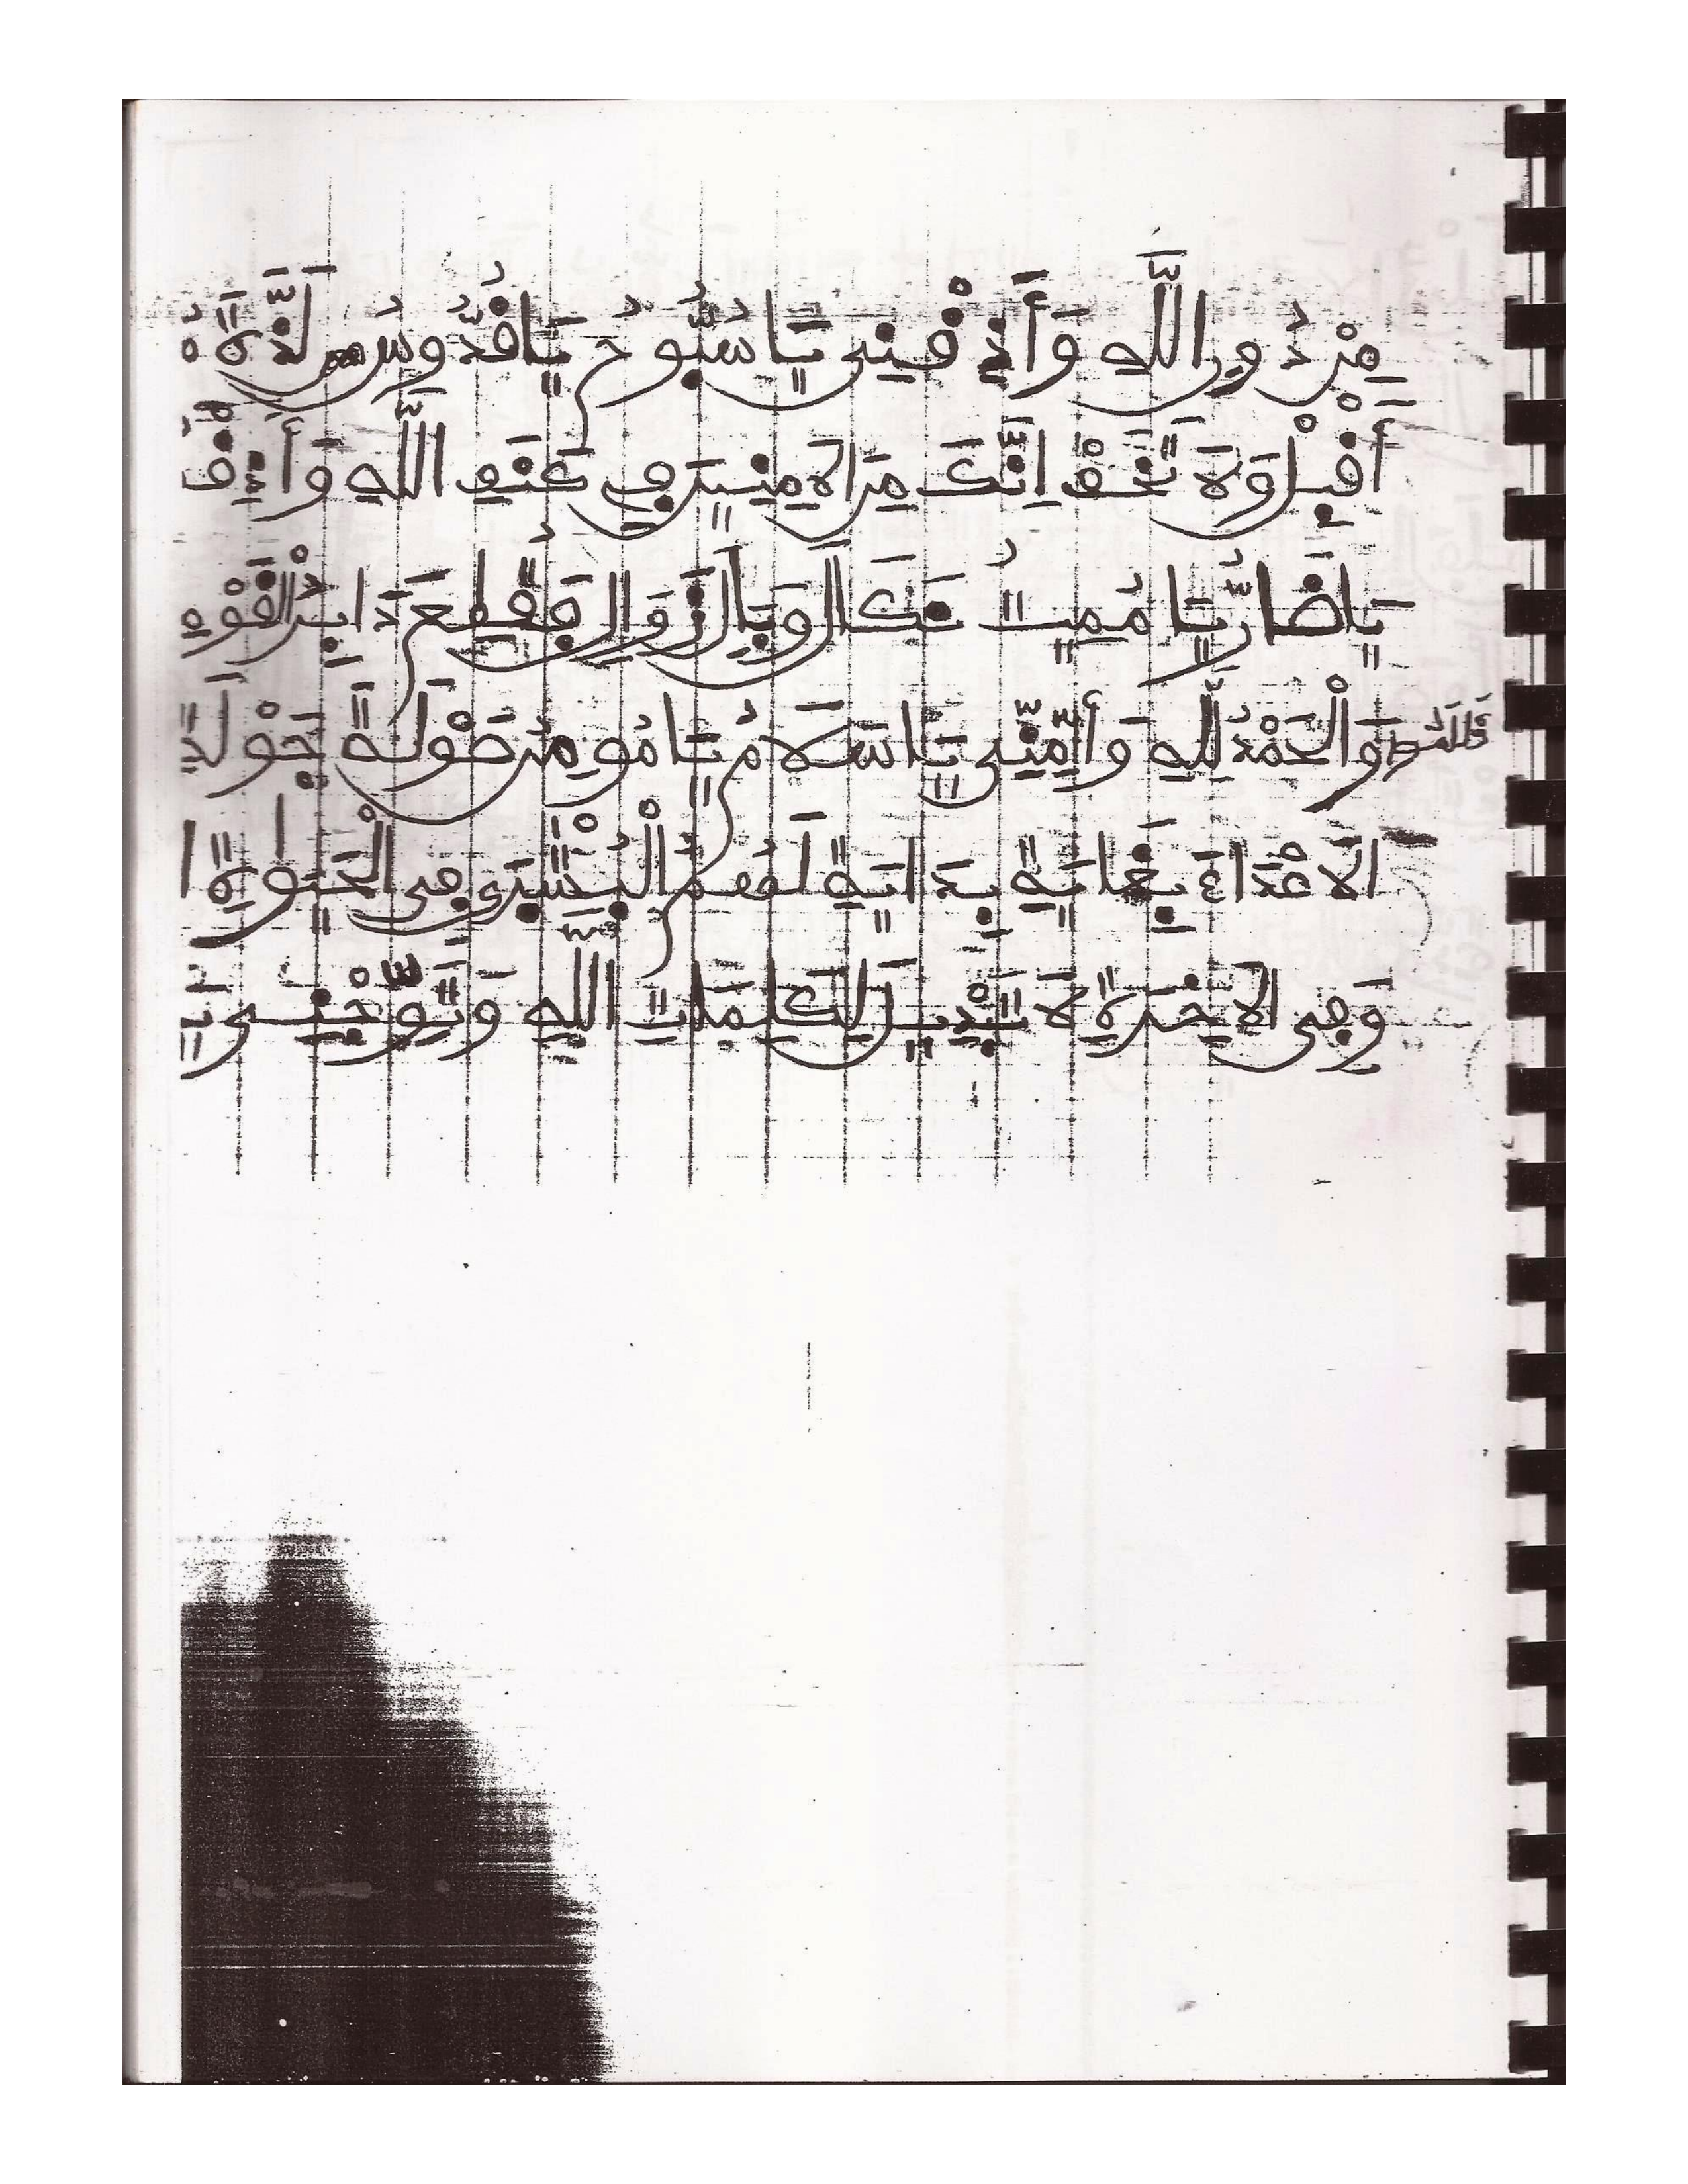 مِنْ دُونِ اللَّهِ وَأَذِقْنِي يَا سُبُّوحُ يَا قُدُّوسُ لَذَّةَ
أَقْبِلْ وَلَا تَخَفْ اِنَّكَ مِنَ الْاٰمِنِينَ فِي كَنَفِ اللَّهِ وَأَذِقْ
يَا ضَارُّ يَا مُمِيتُ نَكَالَ وَبَالَ زَوَالِ فَقُطِعَ دَابِرُ الْقَوْمِ
وَالْحَمْدُ لِلَّهِ وَأَمِّنِّي يَا سَلَامُ يَا مُومِنُ صَوْلَةَ جَوْلَةَ
الْاَعْدَاءِ بِغَايَةِ بِدَايَةِ لَهُمُ الْبُشْرَى فِي الْحَيَوٰةِ ا
وَفِي الْاٰخِرَةِ لَا تَبْدِيلَ لِكَلِمَاتِ اللَّهِ وَتَوِّجْنِي يَا